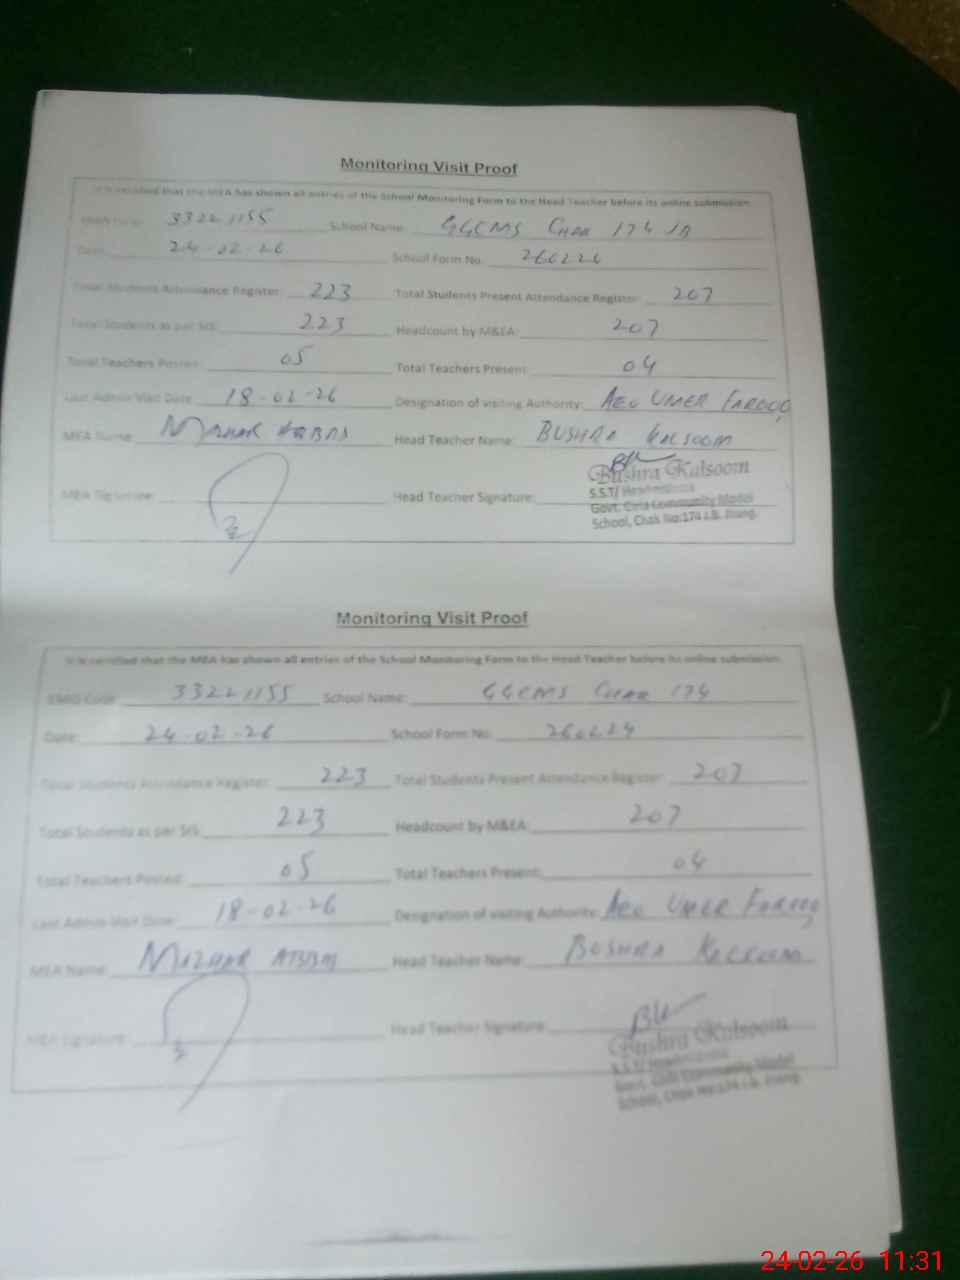 Monitoring Visit Proof
It is certified that the MEA has shown all entries of the School Monitoring Form to the Head Teacher before its online submission.
EMIS Code: 33221155 School Name: GGCMS CHAK 174 JB
Date: 24-02-26 School Form No. 260224
Total Students Attendance Register: 223 Total Students Present Attendance Register: 207
Total Students as per SIS: 223 Headcount by M&EA: 207
Total Teachers Posted: 05 Total Teachers Present: 04
Last Admin Visit Date: 18-02-26 Designation of visiting Authority: AEO UMER FAROOQ
MEA Name: MAZHAR ABBAS Head Teacher Name: BUSHRA KALSOOM
MEA Signature: Head Teacher Signature:
Bushra Kalsoom
S.S.T/ Headmistress
Govt. Girls Community Model
School, Chak No:174 J.B. Jhang.
Monitoring Visit Proof
It is certified that the MEA has shown all entries of the School Monitoring Form to the Head Teacher before its online submission.
EMIS Code: 33221155 School Name: GGCMS CHAK 174
Date: 24-02-26 School Form No. 260224
Total Students Attendance Register: 223 Total Students Present Attendance Register: 207
Total Students as per SIS: 223 Headcount by M&EA: 207
Total Teachers Posted: 05 Total Teachers Present: 04
Last Admin Visit Date: 18-02-26 Designation of visiting Authority: AEO UMER FAROOQ
MEA Name: MAZHAR ABBAS Head Teacher Name: BUSHRA KALSOOM
MEA Signature: Head Teacher Signature:
Bushra Kalsoom
S.S.T/ Headmistress
Govt. Girls Community Model
School, Chak No:174 J.B. Jhang.
24-02-26 11:31